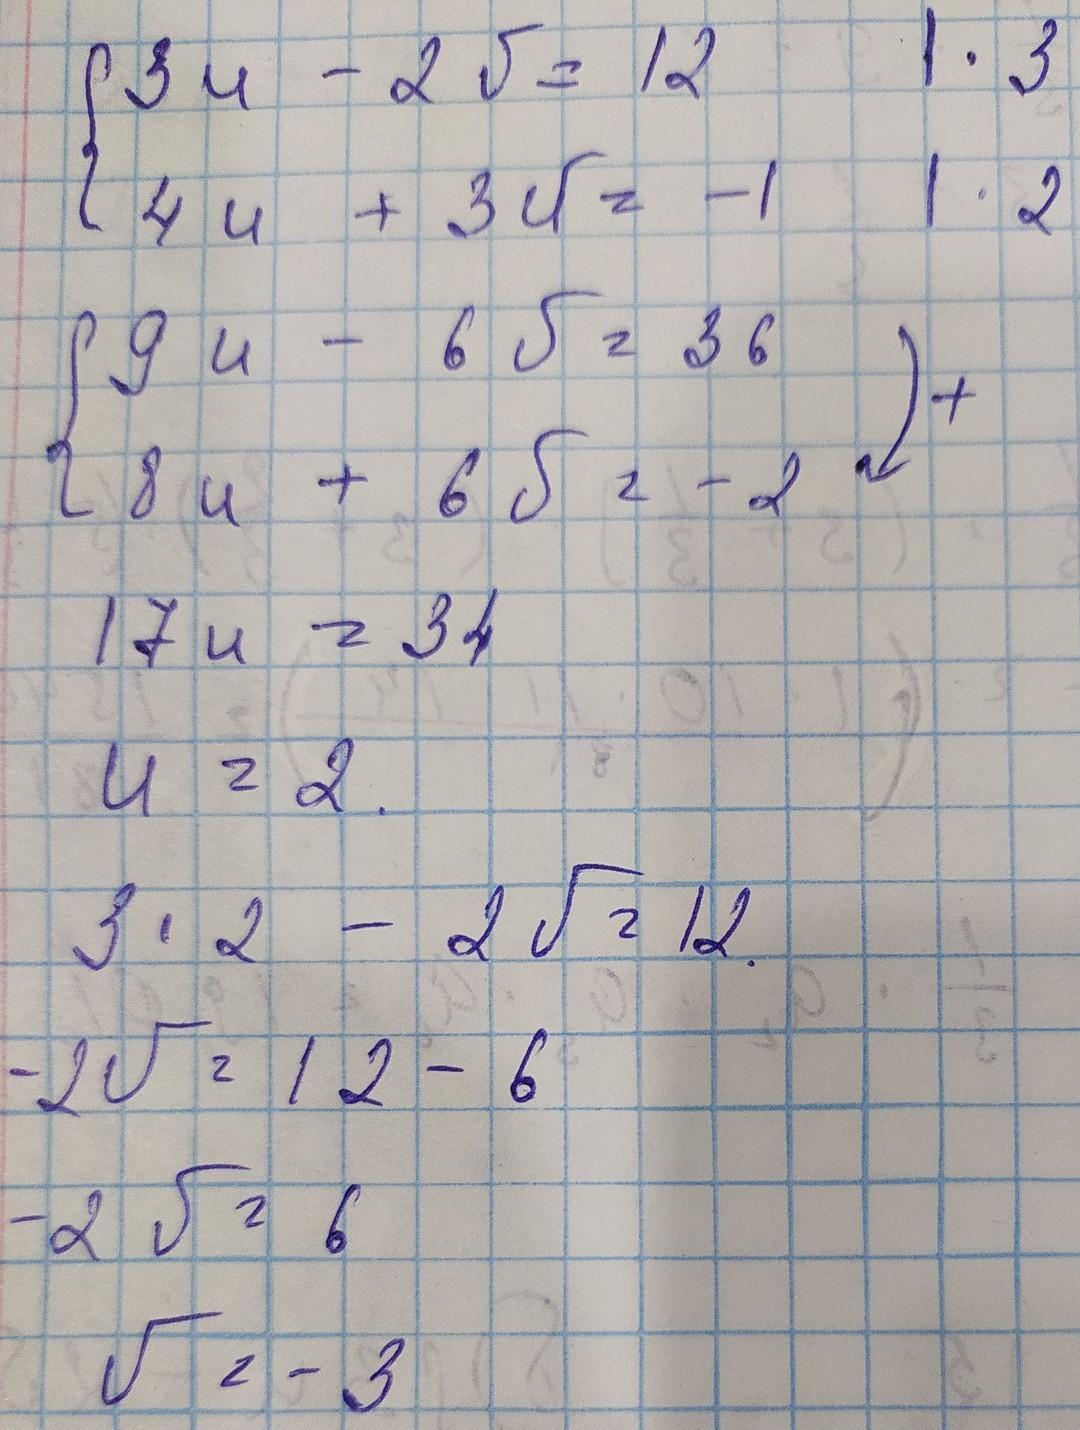 {3u - 2v = 12 | · 3
4u + 3v = -1 | · 2
{9u - 6v = 36
8u + 6v = -2 +
17u = 34
u = 2.
3 · 2 - 2v = 12.
-2v = 12 - 6
-2v = 6
v = -3